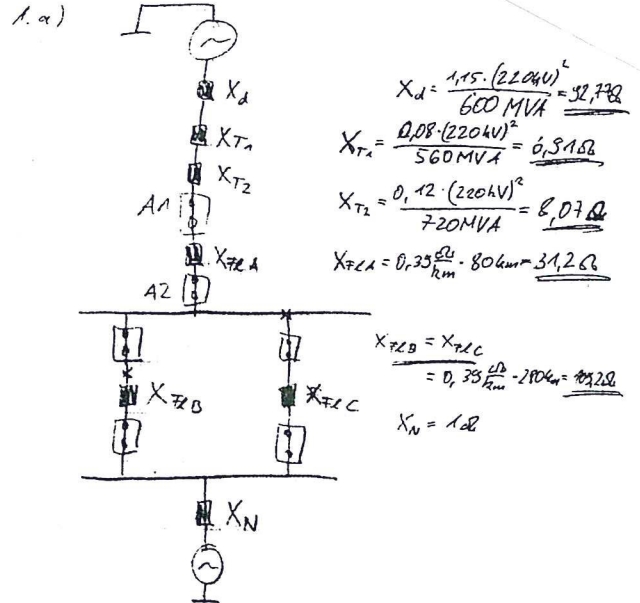 1. a)
X_d
X_T1
X_T2
A1
X_FlA
A2
X_FlB
X_FlC
X_N
X_d = 1,15 · (220kV)² / 600 MVA = 92,77Ω
X_T1 = 0,08 · (220kV)² / 560 MVA = 6,91Ω
X_T2 = 0,12 · (220kV)² / 720MVA = 8,07Ω
X_FlA = 0,39 Ω/km · 80km = 31,2Ω
X_FlB = X_FlC
= 0,39 Ω/km · 280km = 109,2Ω
X_N = 1Ω